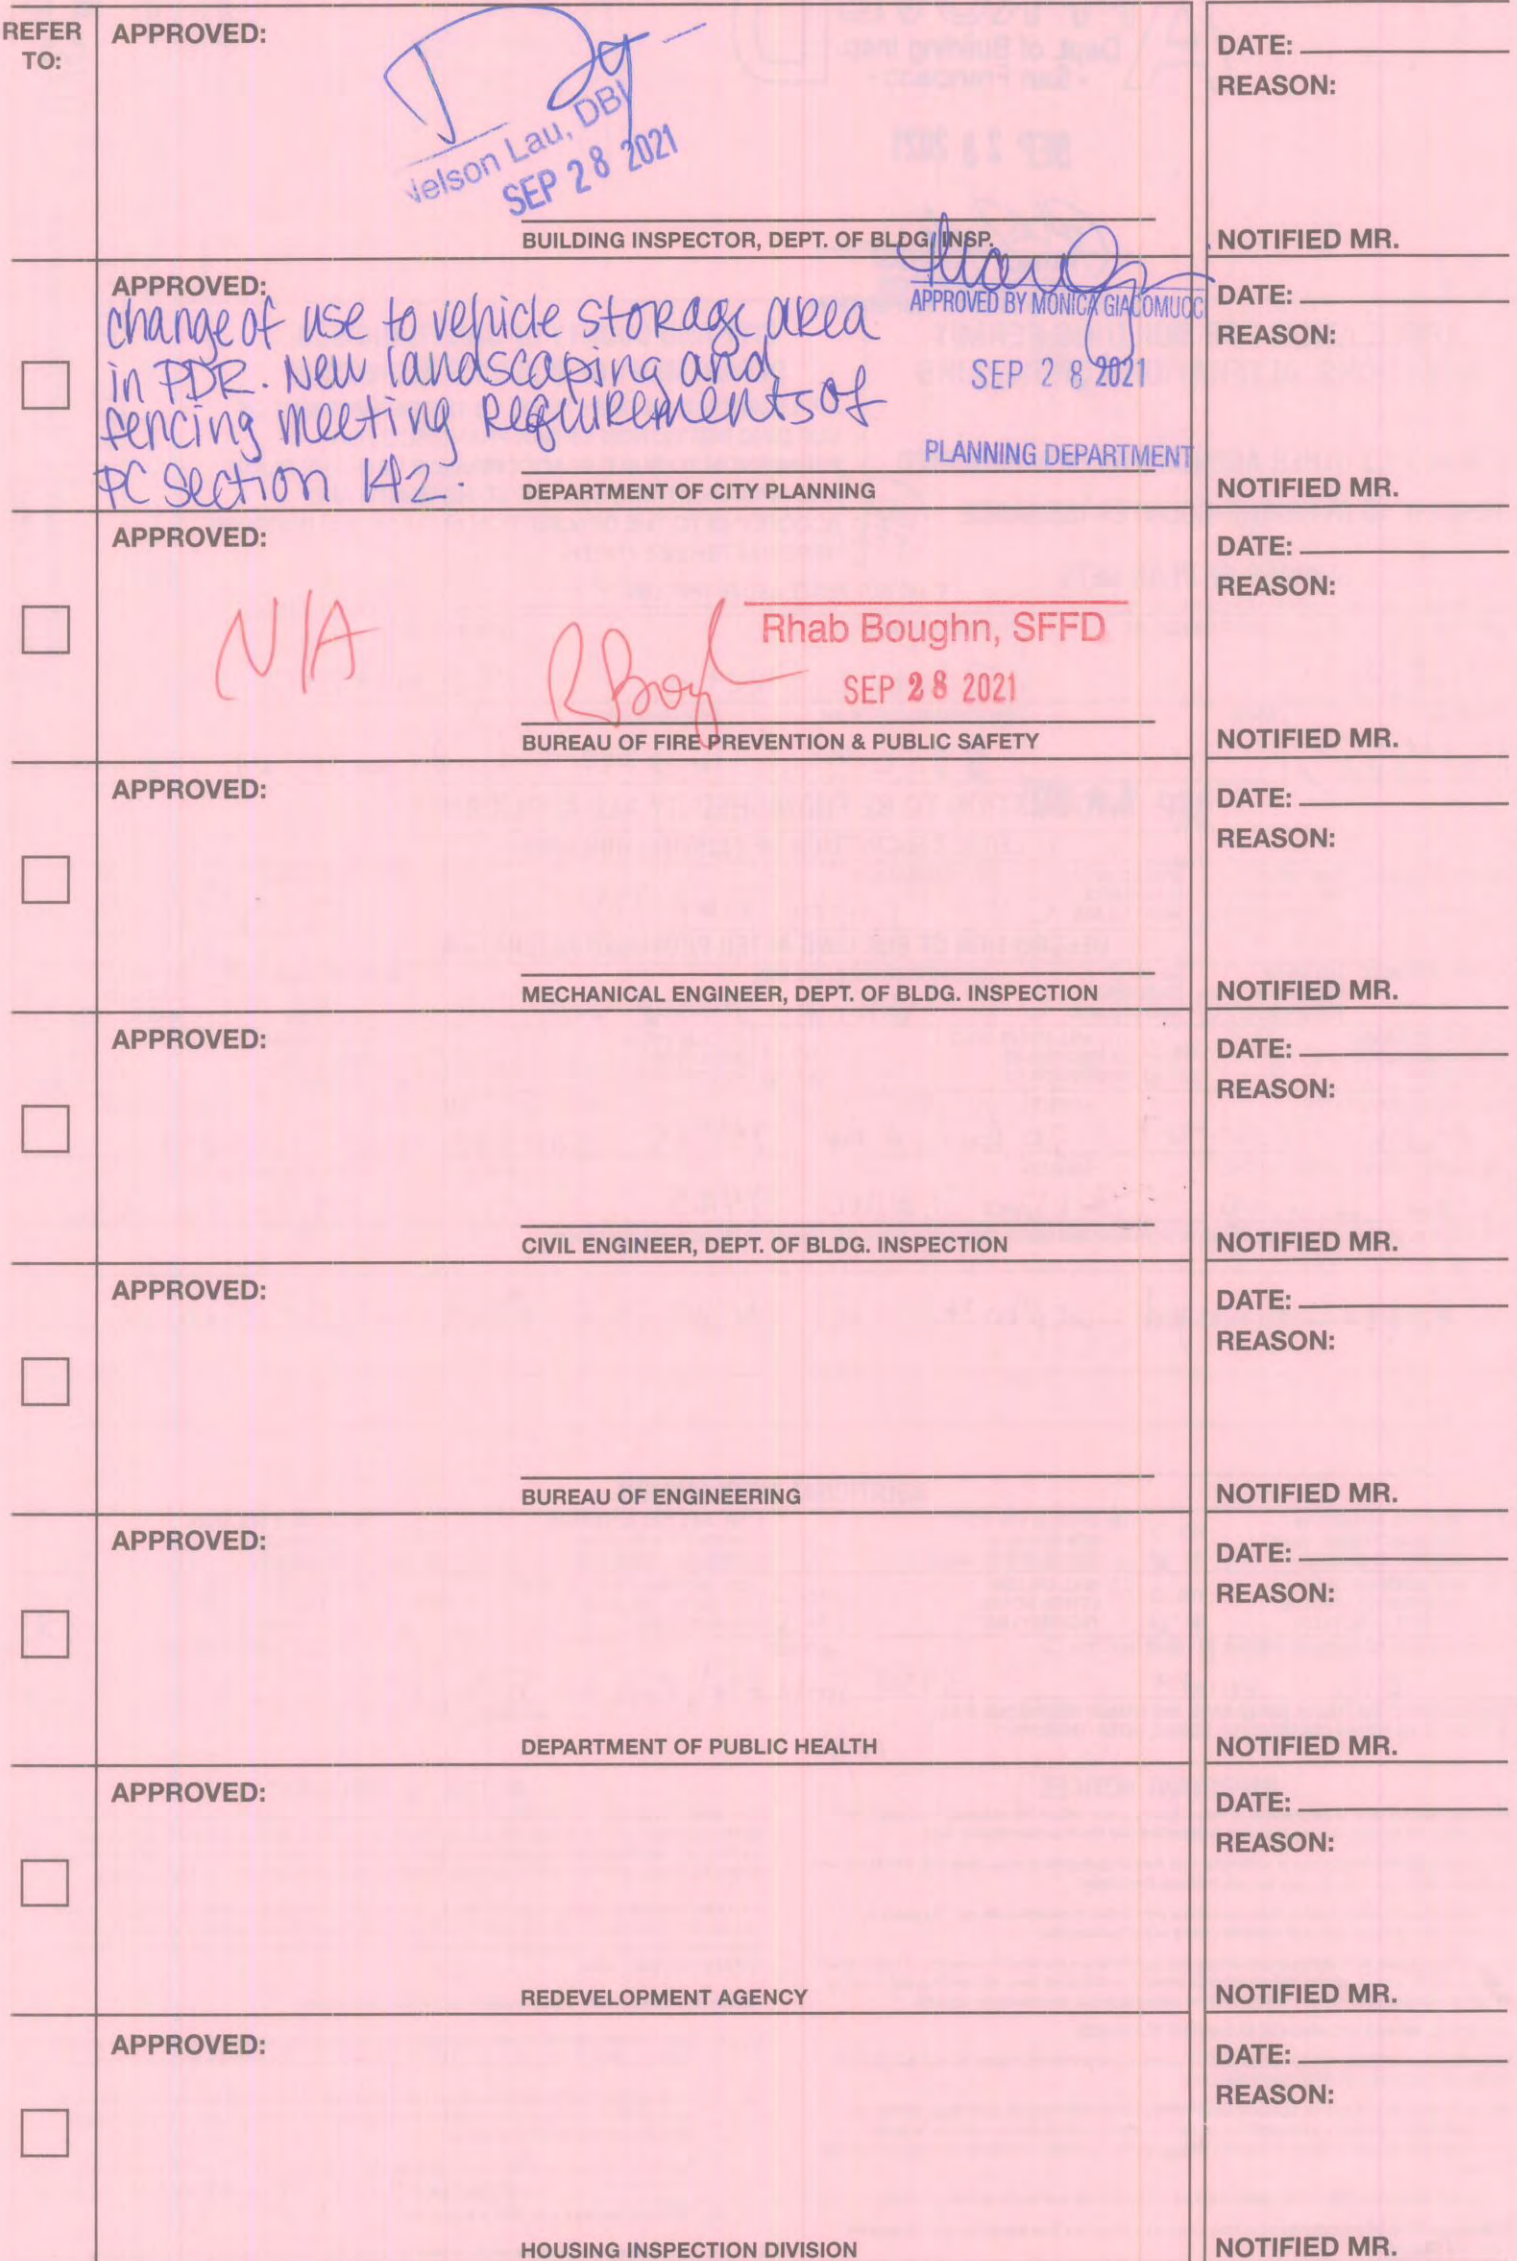 REFER TO:
APPROVED:
DATE:
REASON:
Nelson Lau, DBI
SEP 28 2021
BUILDING INSPECTOR, DEPT. OF BLDG. INSP.
NOTIFIED MR.
APPROVED:
change of use to vehicle storage area
in PDR. New landscaping and
fencing meeting requirements of
PC Section 142.
APPROVED BY MONICA GIACOMUCCI
SEP 28 2021
PLANNING DEPARTMENT
DEPARTMENT OF CITY PLANNING
DATE:
REASON:
NOTIFIED MR.
APPROVED:
N/A
Rhab Boughn, SFFD
SEP 28 2021
BUREAU OF FIRE PREVENTION & PUBLIC SAFETY
DATE:
REASON:
NOTIFIED MR.
APPROVED:
MECHANICAL ENGINEER, DEPT. OF BLDG. INSPECTION
DATE:
REASON:
NOTIFIED MR.
APPROVED:
CIVIL ENGINEER, DEPT. OF BLDG. INSPECTION
DATE:
REASON:
NOTIFIED MR.
APPROVED:
BUREAU OF ENGINEERING
DATE:
REASON:
NOTIFIED MR.
APPROVED:
DEPARTMENT OF PUBLIC HEALTH
DATE:
REASON:
NOTIFIED MR.
APPROVED:
REDEVELOPMENT AGENCY
DATE:
REASON:
NOTIFIED MR.
APPROVED:
HOUSING INSPECTION DIVISION
DATE:
REASON:
NOTIFIED MR.